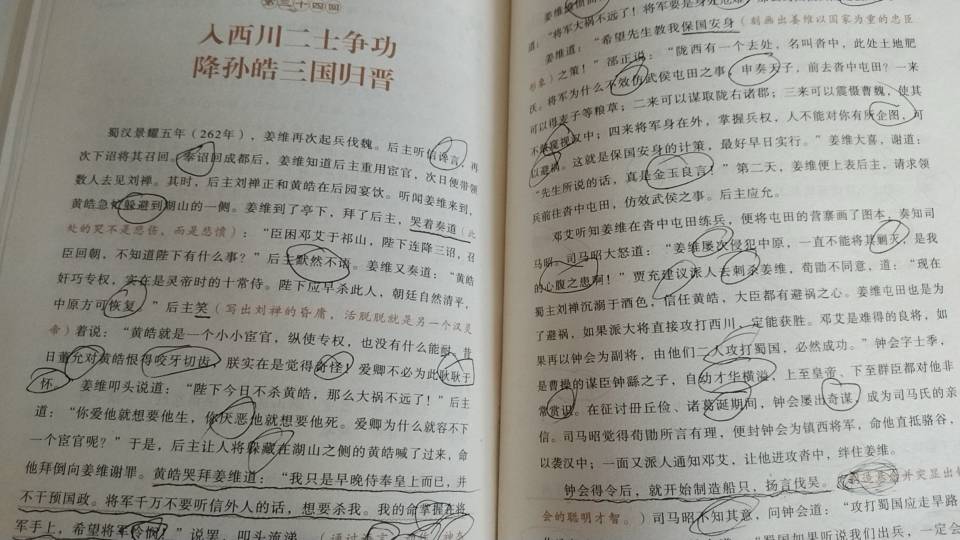 第三十四回
入西川二士争功
降孙皓三国归晋
蜀汉景耀五年（262年），姜维再次起兵伐魏。后主听信谗言，再
次下诏将其召回。奉诏回成都后，姜维知道后主重用宦官，次日便带领
数人去见刘禅。其时，后主刘禅正和黄皓在后园宴饮。听闻姜维来到，
黄皓急忙躲避到湖山的一侧。姜维到了亭下，拜了后主，哭着奏道（此
处的哭不是悲伤，而是悲愤）：“臣困邓艾于祁山，陛下连降三诏，召
臣回朝，不知道陛下有什么事？”后主默然不语。姜维又奏道：“黄皓
奸巧专权，实在是灵帝时的十常侍。陛下应早杀此人，朝廷自然清平，
中原方可恢复。”后主笑（写出刘禅的昏庸，活脱脱就是另一个汉灵
帝）着说：“黄皓就是一个小小宦官，纵使专权，也没有什么能耐。昔
日董允对黄皓恨得咬牙切齿，朕实在是觉得奇怪！爱卿不必为此耿耿于
怀。”姜维叩头说道：“陛下今日不杀黄皓，那么大祸不远了！”后主
道：“你爱他就想要他生，你厌恶他就想要他死。爱卿为什么就容不下
一个宦官呢？”于是，后主让人将躲藏在湖山之侧的黄皓喊了过来，命
他拜倒向姜维谢罪。黄皓哭拜姜维道：“我只是早晚侍奉皇上而已，并
不干预国政。将军千万不要听信外人的话，想要杀我。我的命掌握在将
军手上，希望将军怜悯！”说罢，叩头流涕。（通过
道：“将军大祸不远了！将军要是身处危难
姜维道：“希望先生教我保国安身（刻画出姜维以国家为重的忠臣
形象）之策！”郤正说：“陇西有一个去处，名叫沓中，此处土地肥
沃。将军为什么不效仿武侯屯田之事，申奏天子，前去沓中屯田？一来
可以得麦子等粮草；二来可以谋取陇右诸郡；三来可以震慑曹魏，使其
不敢窥视汉中；四来将军身在外，掌握兵权，人不能对你有所企图，可
以避祸。这就是保国安身的计策，最好早日实行。”姜维大喜，谢道：
“先生所说的话，真是金玉良言！”第二天，姜维便上表后主，请求领
兵前往沓中屯田，仿效武侯之事。后主应允。
邓艾听知姜维在沓中屯田练兵，便将屯田的营寨画了图本，奏知司
马昭。司马昭大怒道：“姜维屡次侵犯中原，一直不能将其剿灭，是我
的心腹之患啊！”贾充建议派人去刺杀姜维，荀勖不同意，道：“现在
蜀主刘禅沉溺于酒色，信任黄皓，大臣都有避祸之心。姜维屯田也是为
了避祸，如果派大将直接攻打西川，定能获胜。邓艾是难得的良将，如
果再以钟会为副将，由他们二人攻打蜀国，必然成功。”钟会字士季，
是曹操的谋臣钟繇之子，自幼才华横溢，上至皇帝、下至群臣都对他非
常赏识。在征讨毌丘俭、诸葛诞期间，钟会屡出奇谋，成为司马氏的亲
信。司马昭觉得荀勖所言有理，便封钟会为镇西将军，命他直抵骆谷，
以袭汉中；一面又派人通知邓艾，让他进攻沓中，绊住姜维。
钟会得令后，就开始制造船只，扬言伐吴。
并突显出钟
会的聪明才智。）司马昭不知其意，问钟会道：“攻打蜀国应走旱路
“蜀国如果听说我们出兵，一定会